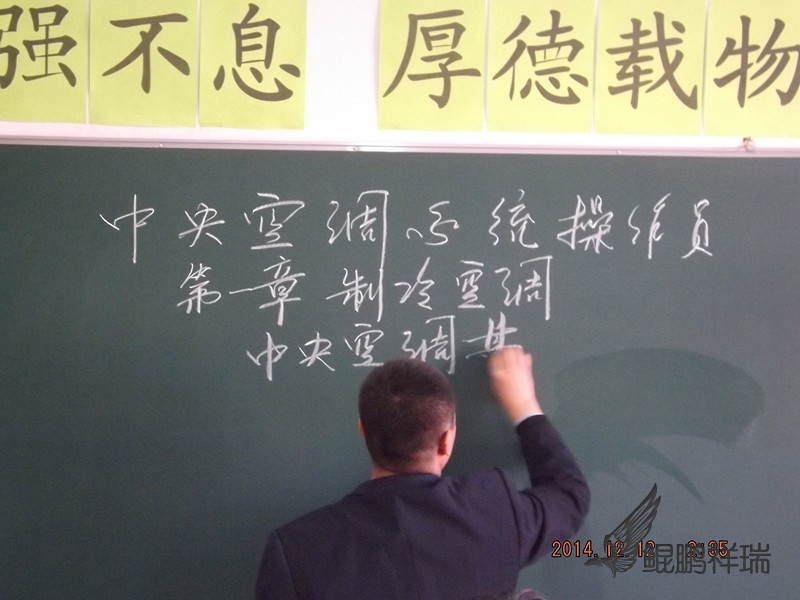 强不息 厚德载物
中央空调系统操作员
第一章 制冷空调
中央空调
2014.12.12
鲲鹏祥瑞